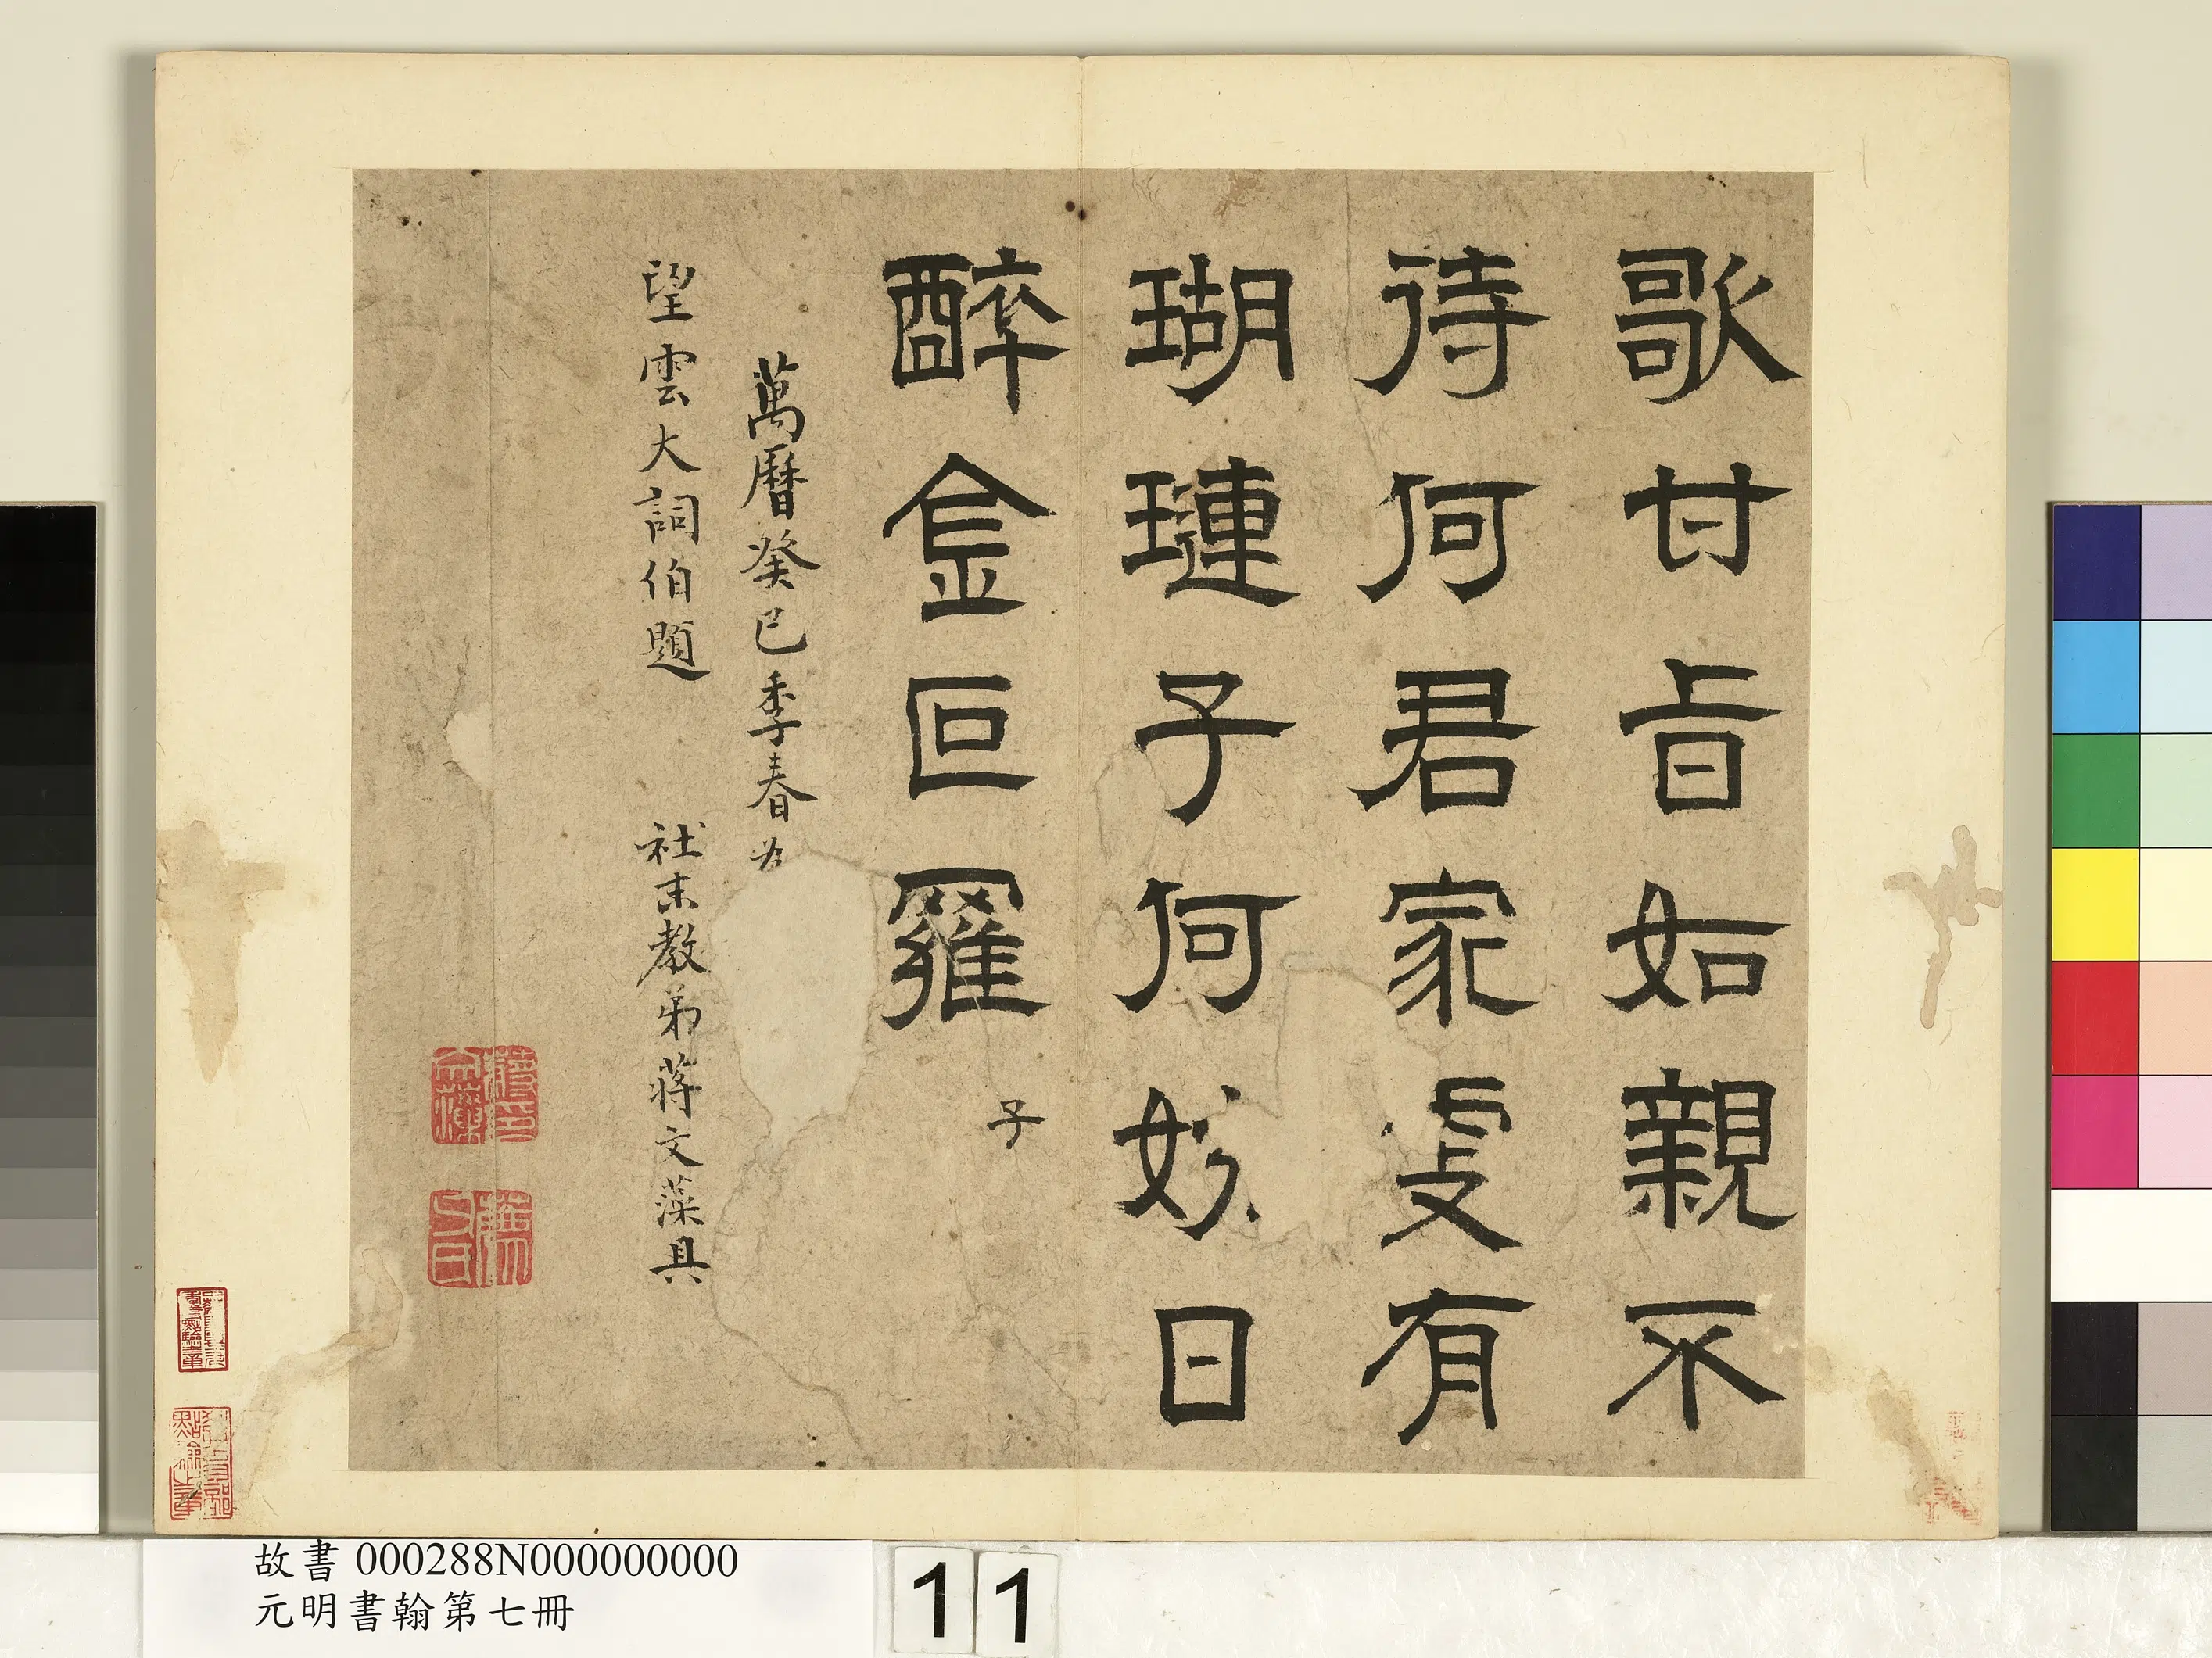 歌甘旨如親不
待何君家處有
瑚璉子何妙日
醉金叵羅
子
萬曆癸巳季春為
望雲大詞伯題　社末教弟蔣文藻具
故書 000288N000000000
元明書翰第七冊
11